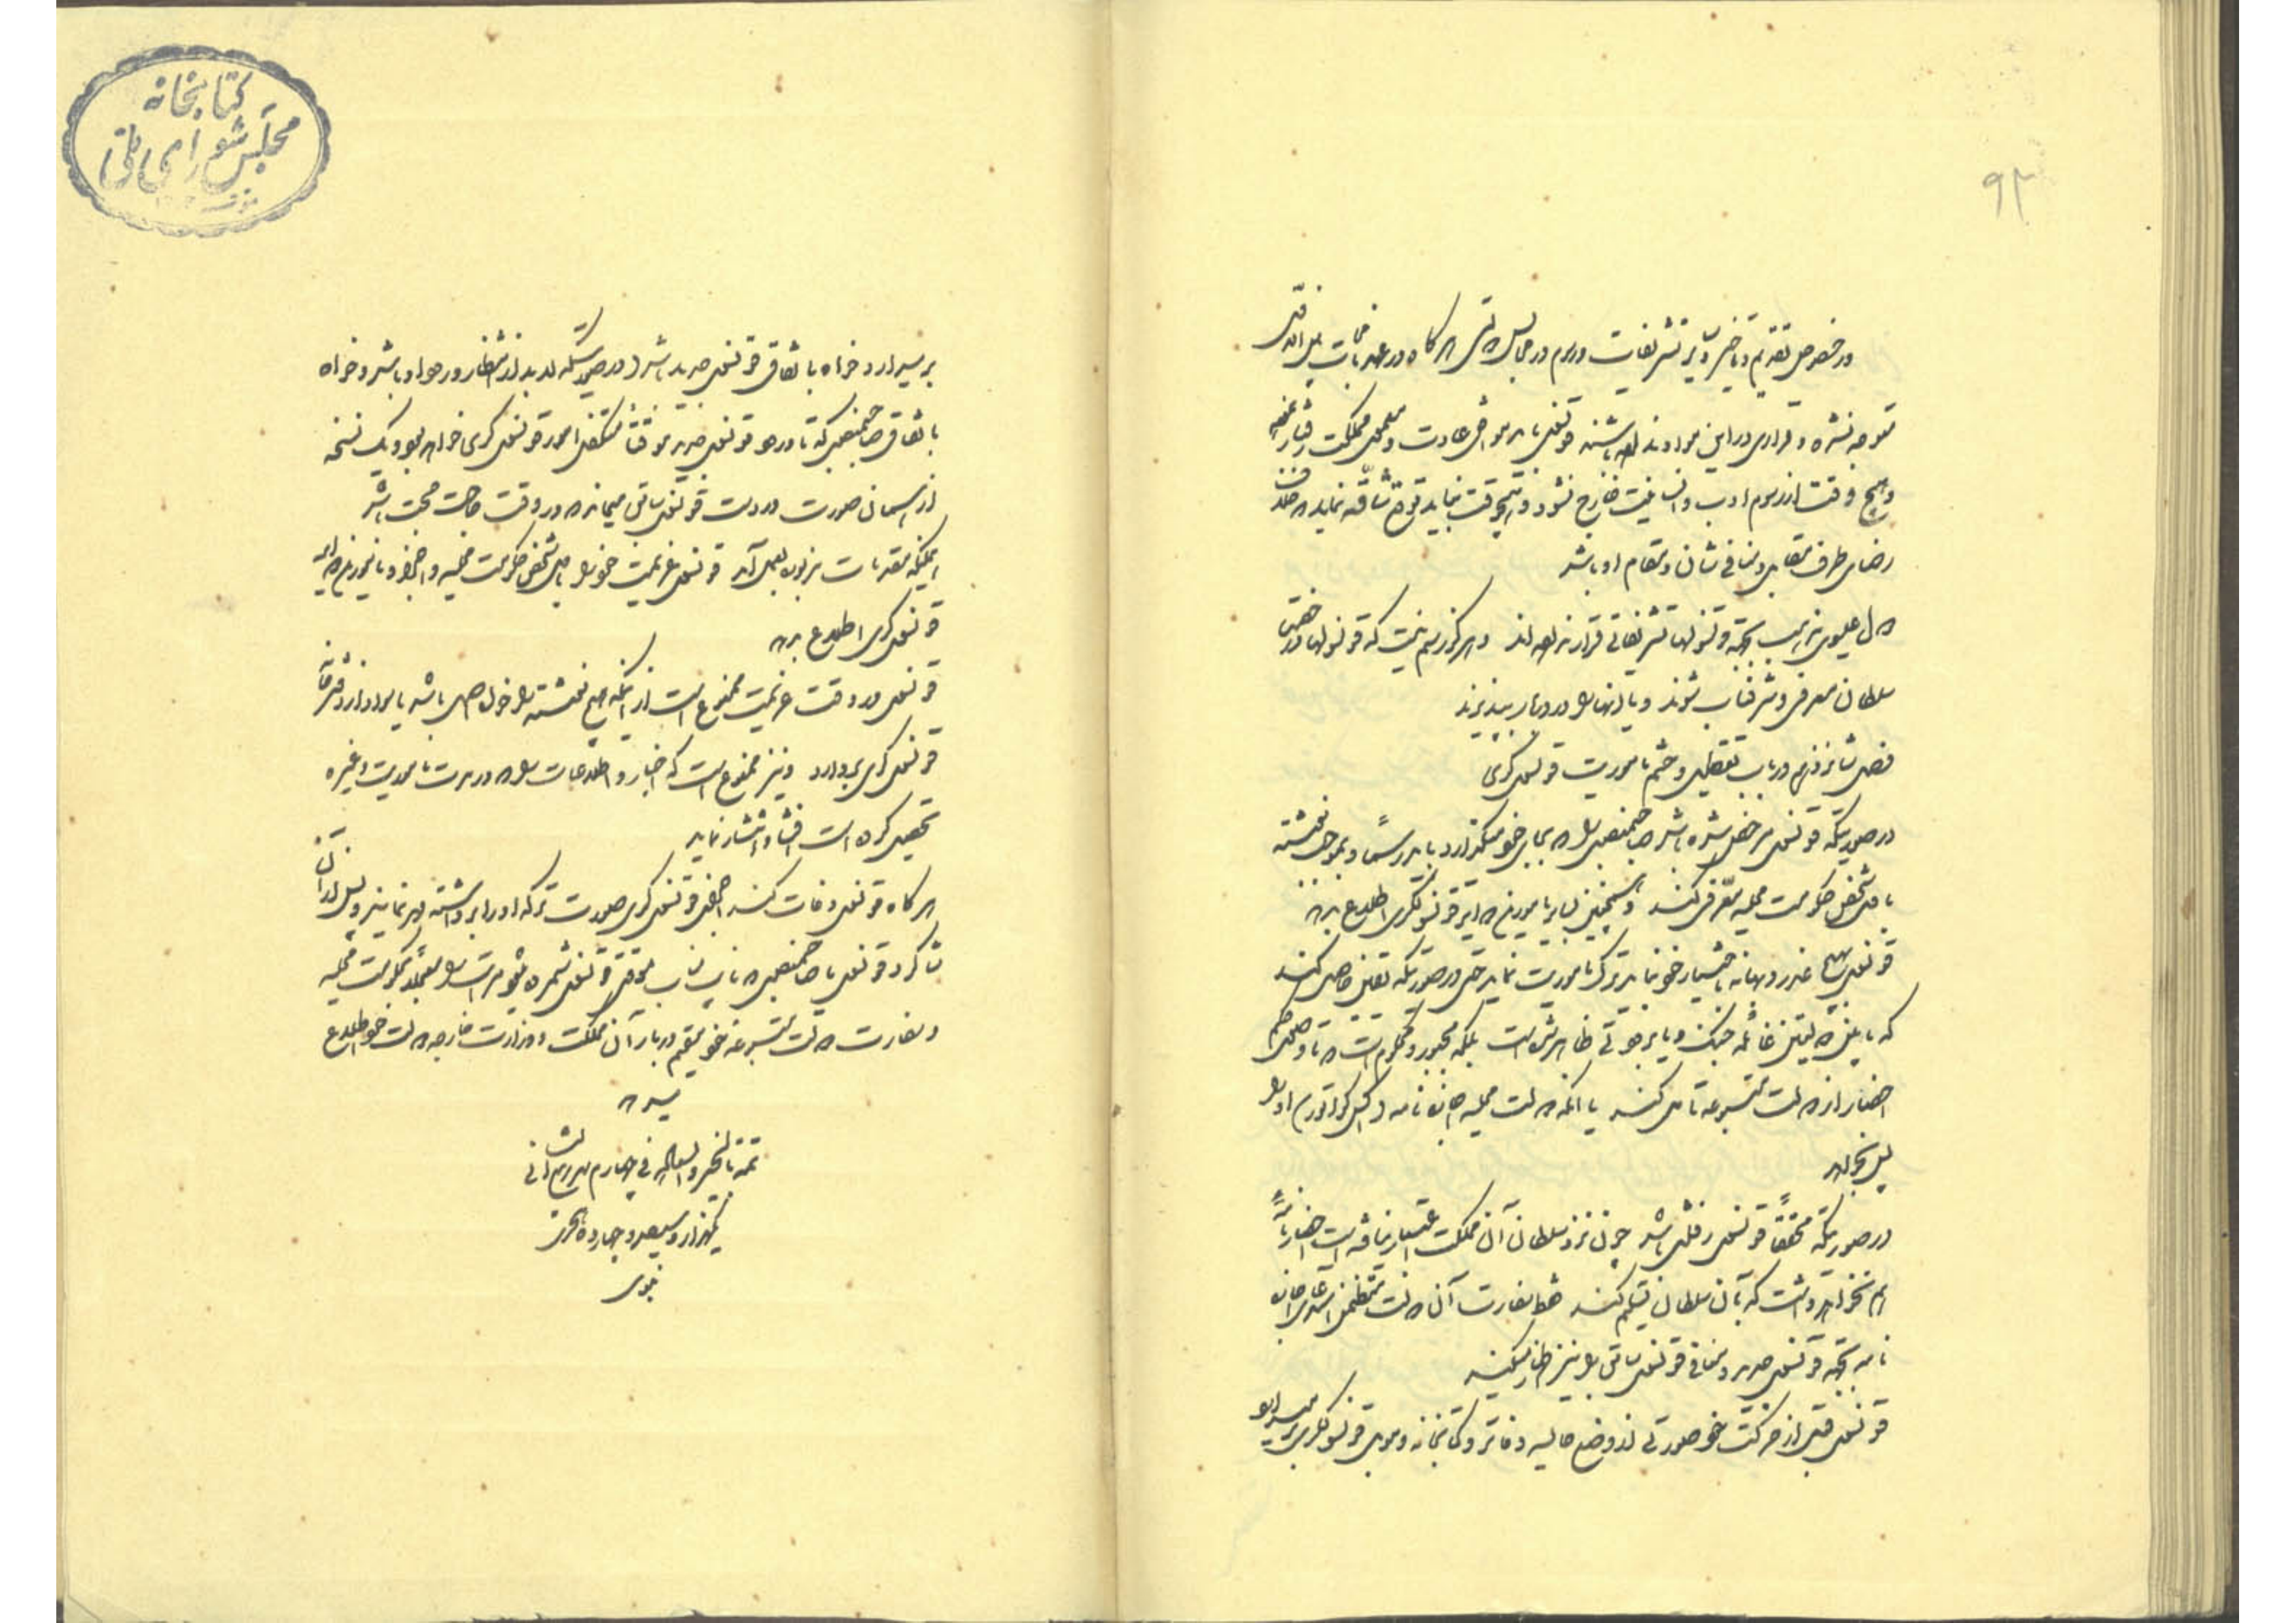 ۹۳
در خصوص تقدیم و تاخیر و یا تشریفات و رسوم در مجالس دولتی هرگاه در عهدنامجات بین الدولتین
متوجه نشده و قراری در این مواد نداده باشند قونسول باید موافق عادت و معمول مملکت رفتار نموده
و هیچ وقت از رسوم ادب و انسانیت خارج نشود و هیچوقت نباید توقع شاقه نماید که خلاف
رضای طرف مقابل و منافی شان و مقام او باشد
دول علیوی مذهب بجهة قونسولها تشریفاتی قرار نداده‌اند و هرگز رسم نیست که قونسولها در حضور
سلطان معرفی و شرفیاب شوند و یا آنها را در دربار بپذیرند
فصل شانزدهم در باب تعطیل و ختم ماموریت قونسول‌گری
در صورتیکه قونسول مرخص شده باشد صاحبمنصبی را که بجای خود میگذارد باید رسماً و بموجب نوشته
با مشخص حکومت محلیه معرفی کند و همچنین بسایر مامورین دوایر قونسولگری اطلاع بدهد
قونسول بهیچ عذر و بهانه باختیار خود نباید ترک ماموریت نماید حتی در صورتیکه یقین حاصل کند
که ما بین دولتین غائله جنک و یا برخوتی ظاهر شده است بلکه مجبور و محکوم است که تا وصول حکم
احضار از دولت متبوعه تأمل کند یا آنکه دولت محلیه اجازه‌نامه (اکزکواتور) او را
پس بخواهد
در صورتیکه محققاً قونسول رفتنی باشد چون نزد سلطان آن مملکت اعتبار نیافته است احضارنامهٔ
هم نخواهد داشت که بآن سلطان تسلیم کند فقط سفارت آن دولت متضمن استدعای اجازه
نامه بجهة قونسول جدید و معافی قونسول سابق را نیز اظهار میکند
قونسول قبل از حرکت خود صورتی از وضع حالیه دفاتر و کتابخانه و موبل قونسولگری ترتیب داده
برمیدارد خواه باتفاق قونسول جدید باشد (در صورتیکه لابد از انتظار ورود او باشد) و خواه
باتفاق صاحبمنصبی که تا ورود قونسول جدید موقتاً متکفل امور قونسول گری خواهد بود و یک نسخه
از همان صورت در دست قونسول سابق میماند که در وقت حاجت حجت باشد
همینکه مقدمات مزبوره بعمل آمد قونسول عزیمت خود را باید بمشخص حکومت محلیه و اجزاء و مامورین دایره
قونسول گری اطلاع بدهد
قونسول در وقت عزیمت ممنوع است از اینکه هیچ نوشته را خواه اصل باشد یا سواد از دفترخانه
قونسول گری بردارد و نیز ممنوع است که اخبار و اطلاعات را که در مدت ماموریت و غیره
تحصیل کرده است افشا و انتشار نماید
هرگاه قونسول وفات کند اجزای قونسول گری صورت ترکه او را برداشته مهر نمایند و پس از آن
شاگرد قونسول یا صاحبمنصبی که نایب مناب موقتی قونسول شمرده شود مراتب را معجلاً بحکومت محلیه
و سفارت دولت متبوعه خود مقیم دربار آن مملکت و وزارت خارجه دولت خود اطلاع
میدهد
تمت بالخیر و السعاده فی چهارم شهر ربیع الثانی
یکهزار و سیصد و چهارده هجری
نبوی
کتابخانه
مجلس شورای ملی